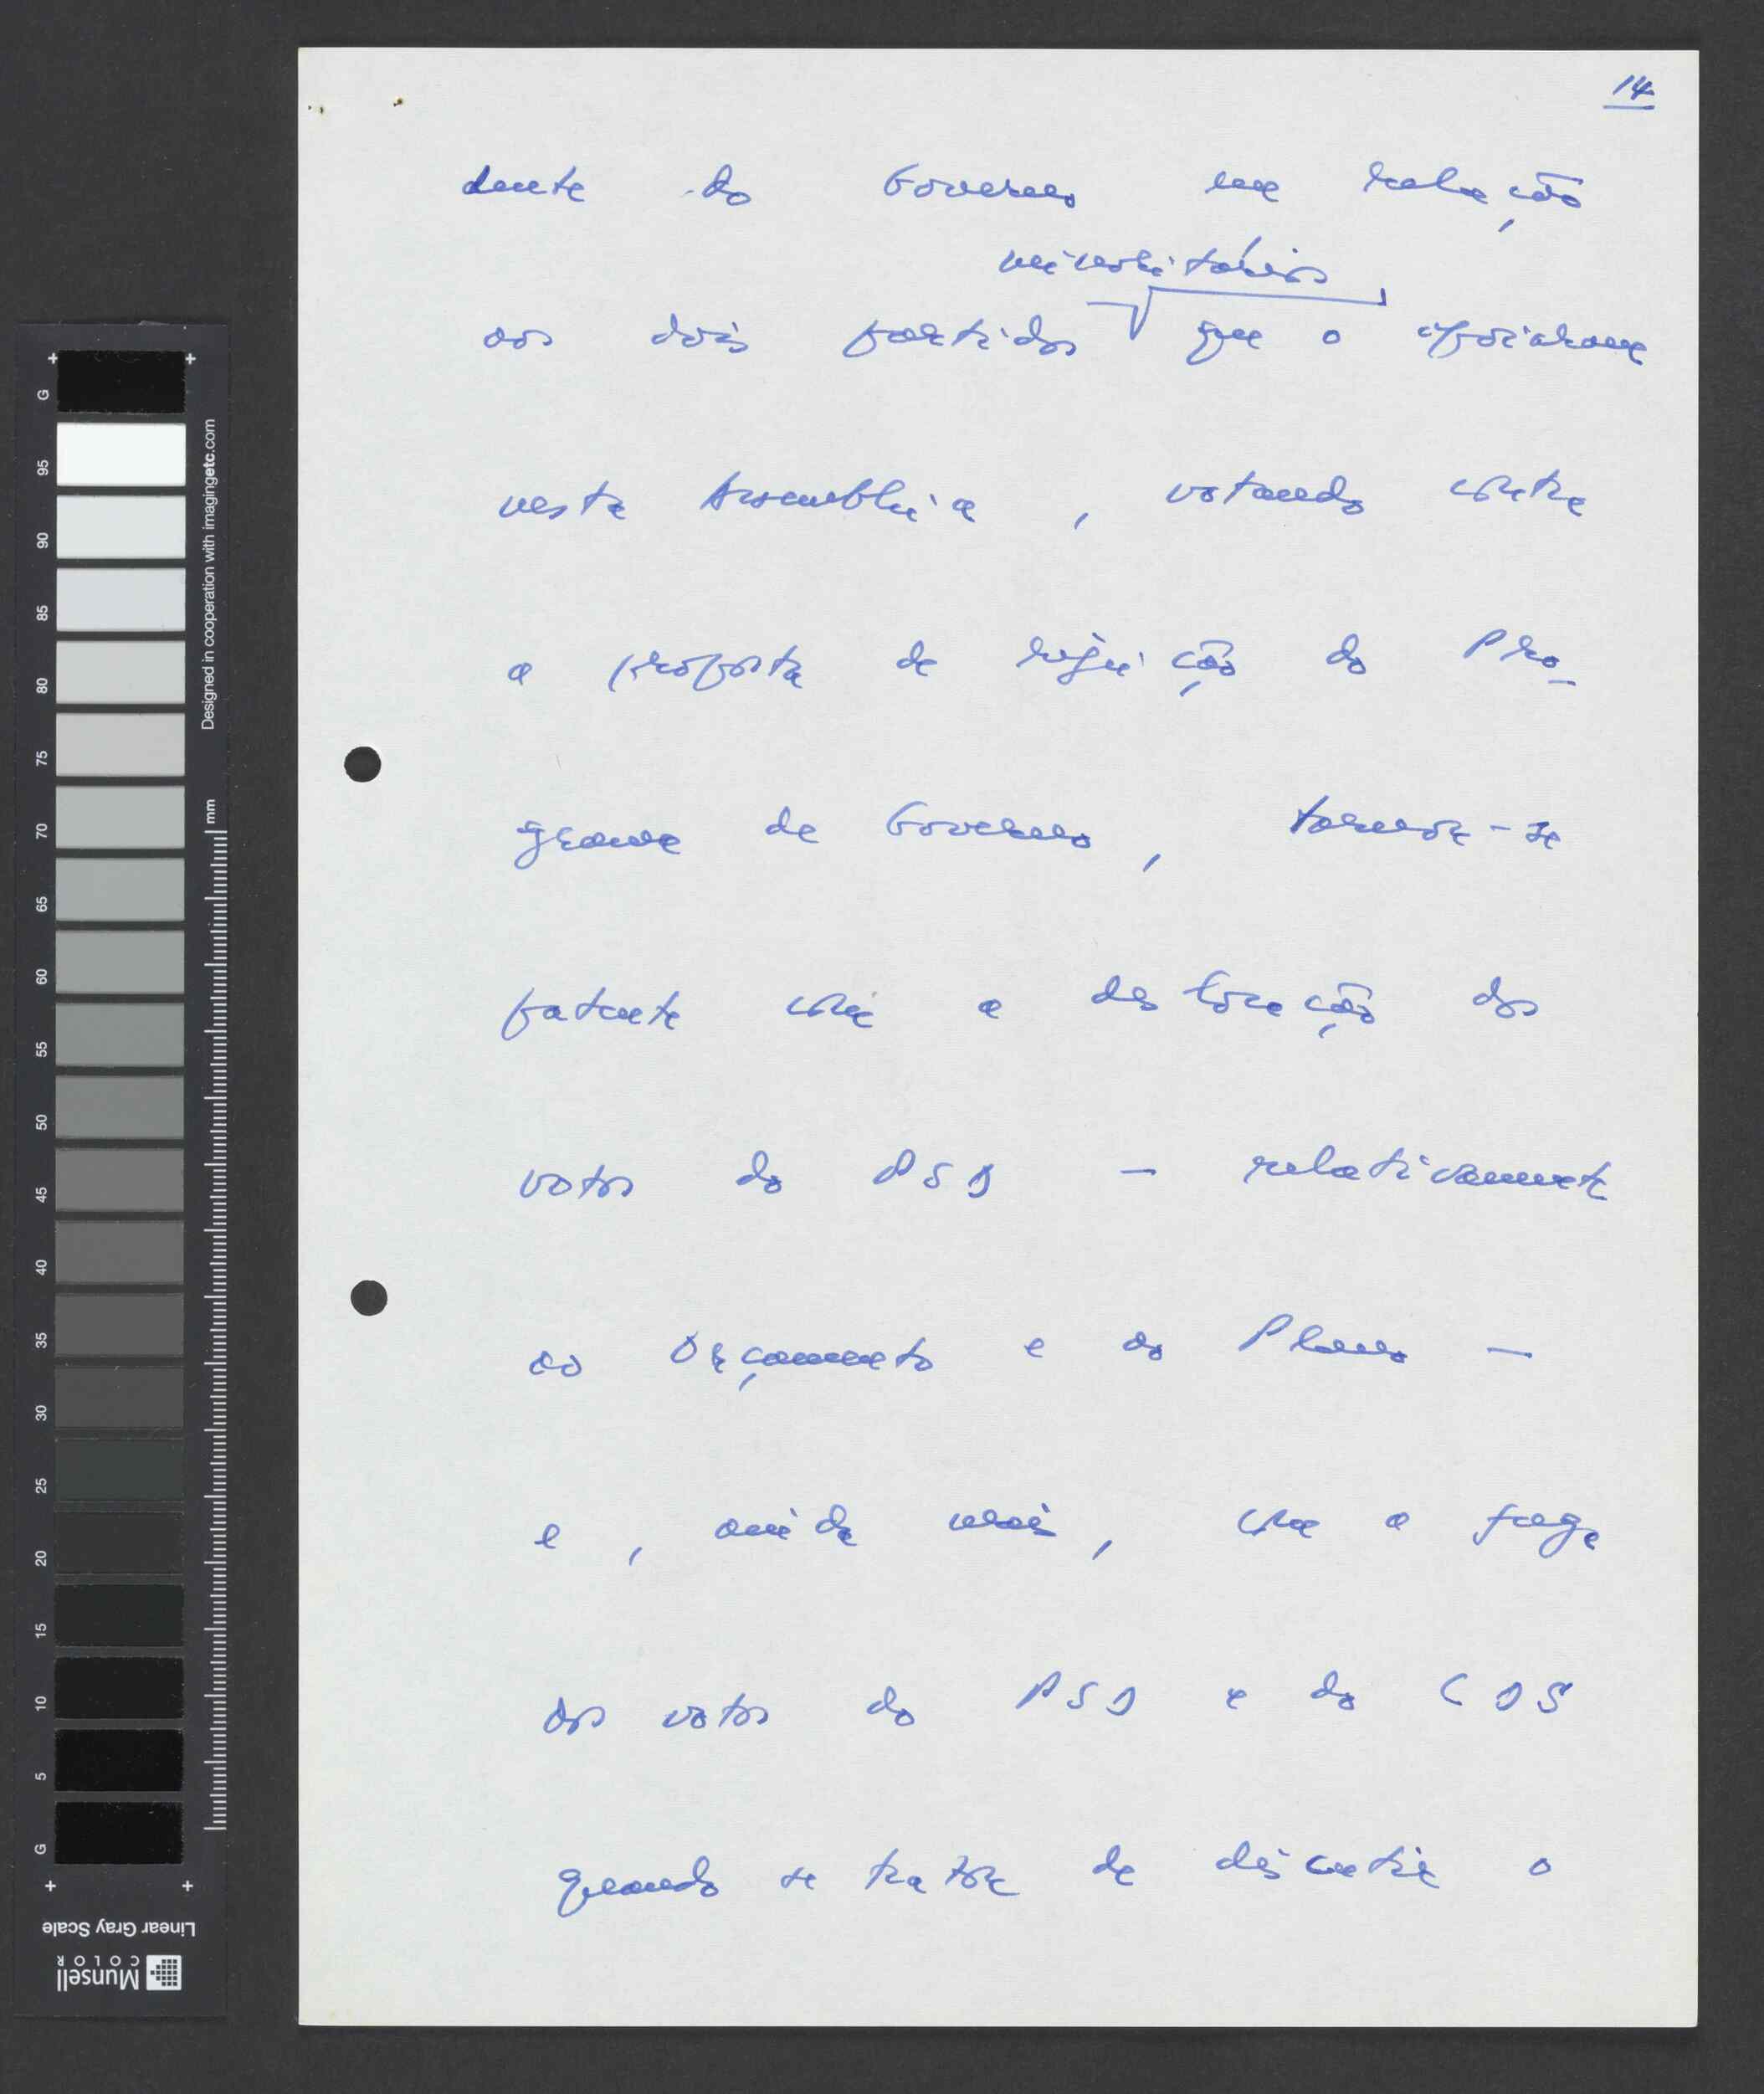 14
dente do Governo em relação
minoritários
aos dois partidos que o apoiaram
nesta Assembleia, votando contra
a proposta de rejeição do Pro-
grama de Governo, tornou-se
patente com a deslocação dos
votos do PSD — relativamente
ao Orçamento e ao Plano —
e, ainda mais, com a fuga
dos votos do PSD e do CDS
quando se tratou de discutir o
G 95 90 85 80 75 70 65 60 55 50 45 40 35 30 25 20 15 10 5 G
Designed in cooperation with imagingetc.com
mm
Linear Gray Scale
Munsell
COLOR